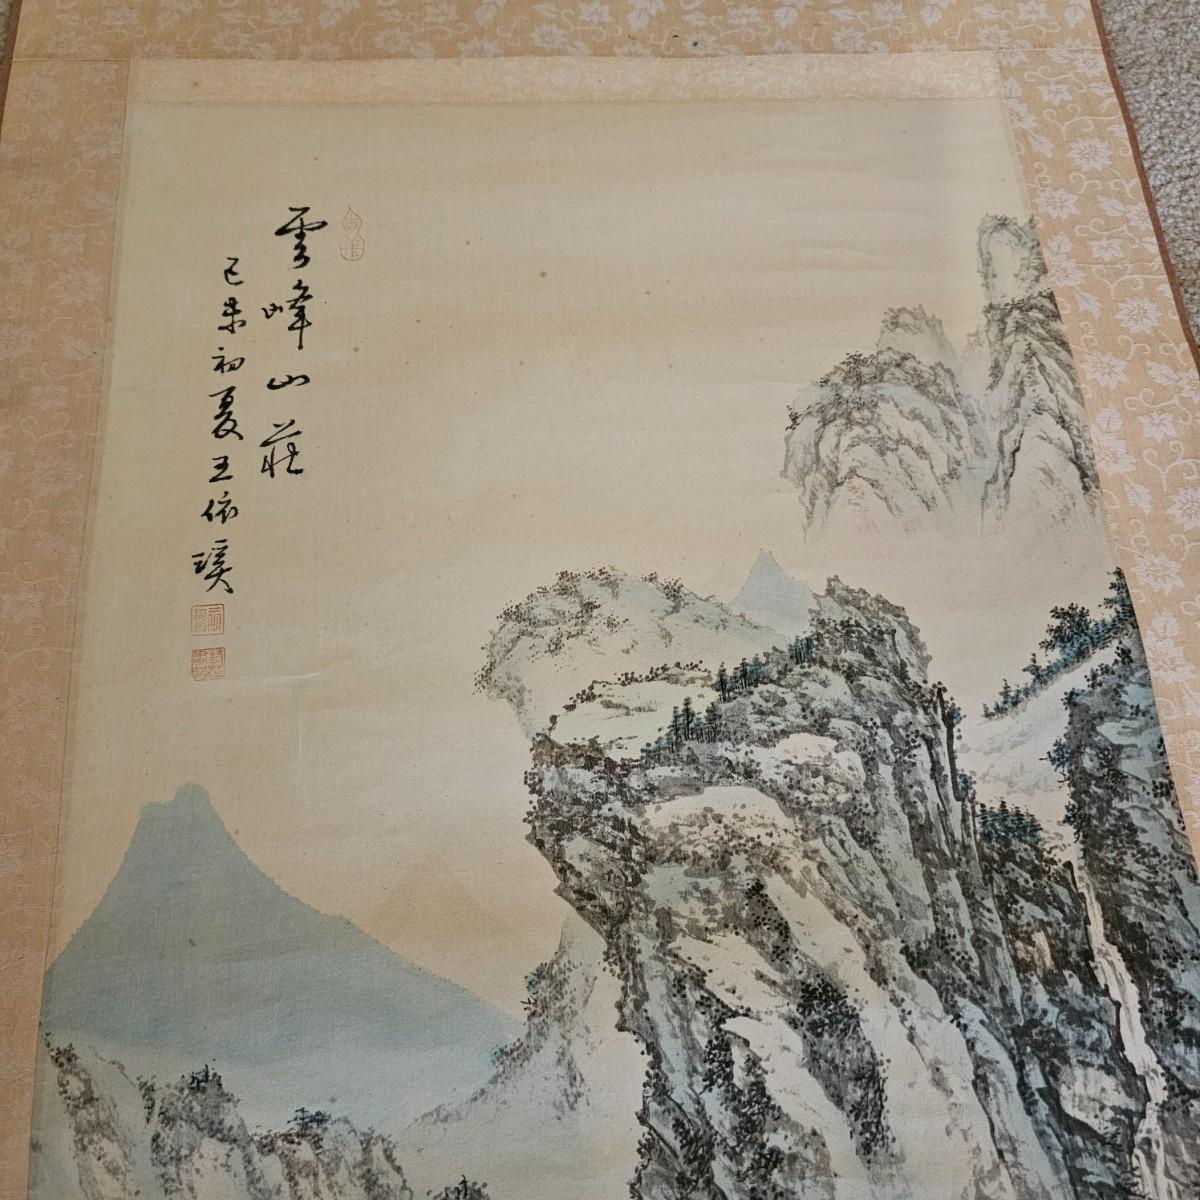 雲峰山莊
己未初夏王依瑛